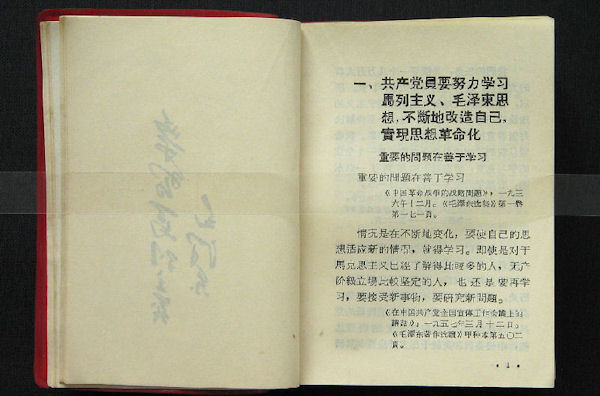 一、共产党員要努力学习
馬列主义、毛泽東思
想,不断地改造自己,
實現思想革命化
重要的問題在善于学习
重要的問題在善于学习
《中国革命战争的战略問題》,一九三
六年十二月。《毛泽东选集》第一卷
第一七一頁。
情况是在不断地变化,要使自己的思
想适应新的情况,就得学习。即使是对于
馬克思主义已經了解得比較多的人,无产
阶級立場比較坚定的人,也还是要再学
习,要接受新事物,要研究新問題。
《在中国共产党全国宣傳工作会議上的
講話》,一九五七年三月十二日。
《毛泽东著作选讀》甲种本第五〇二
頁。
· 1 ·